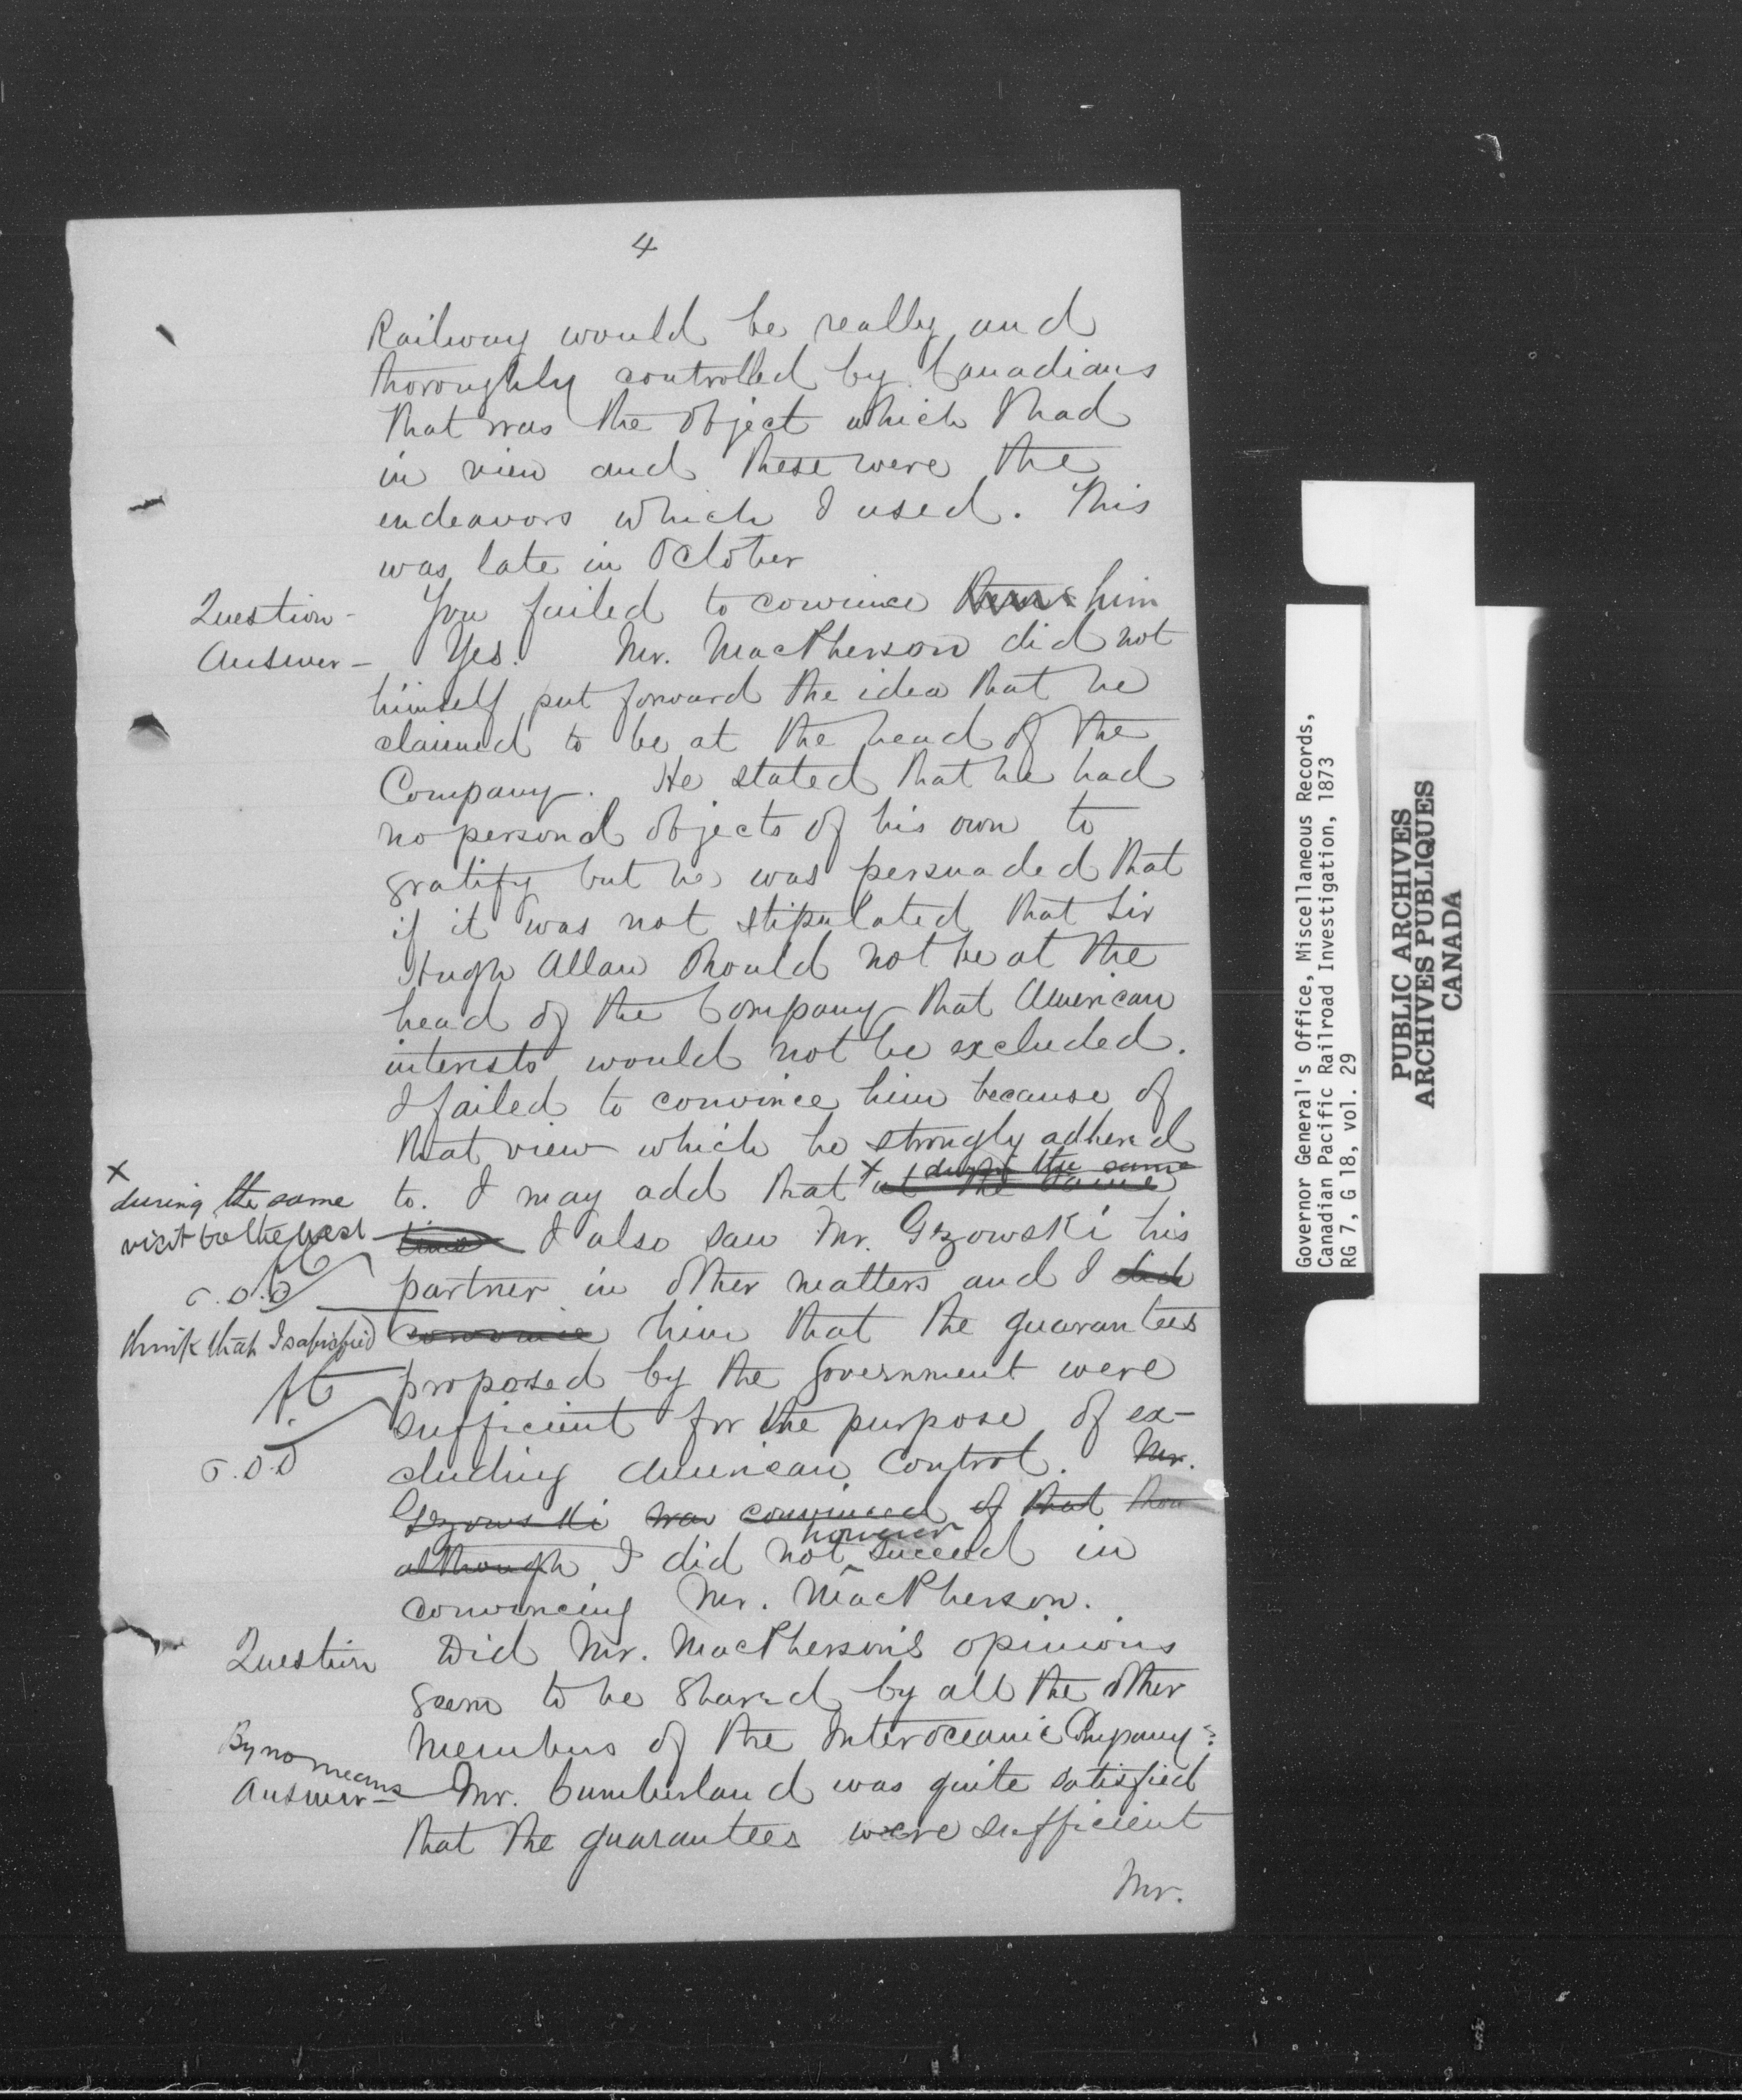 4
Railway would be really and
thoroughly controlled by Canadians
that was the object which I had
in view and these were the
endeavors which I used. This
was late in October
Question - You failed to convince him
Answer - Yes. Mr. MacPherson did not
himself put forward the idea that he
claimed to be at the head of the
Company. He stated that he had
no personal objects of his own to
gratify but he was persuaded that
if it was not stipulated that Sir
Hugh Allan should not be at the
head of the Company that American
interests would not be excluded.
I failed to convince him because of
that view which he strongly adhered
during the same
to. I may add that x at the same
x
during the same
visit to the west
time I also saw Mr. Gzowski his
partner in other matters and I did
think that I satisfied
convince him that the guarantees
proposed by the Government were
sufficient for the purpose of ex-
cluding American control. Mr.
Gzowski was convinced of that
although I did not however succeed in
convincing Mr. MacPherson.
Question Did Mr. MacPherson's opinions
seem to be shared by all the other
members of the Interoceanic Company?
By no means
Answer - Mr. Cumberland was quite satisfied
that the guarantees were sufficient
Mr.
Governor General's Office, Miscellaneous Records,
Canadian Pacific Railroad Investigation, 1873
RG 7, G 18, vol. 29
PUBLIC ARCHIVES
ARCHIVES PUBLIQUES
CANADA